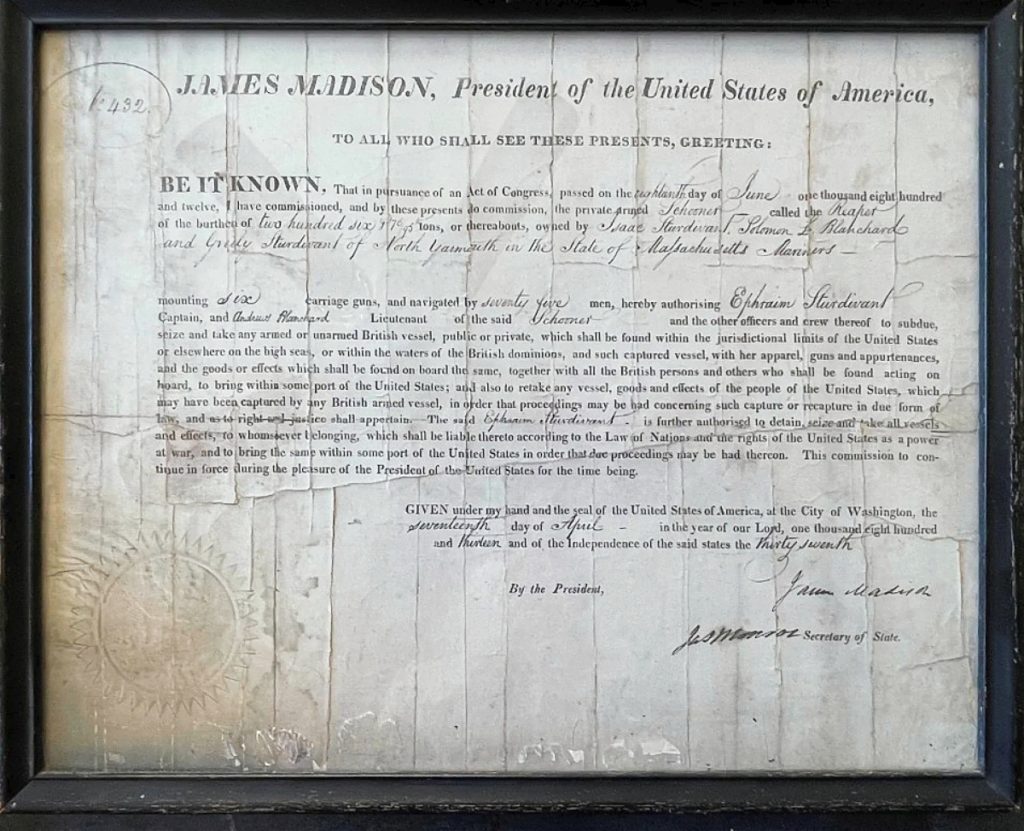 No 432
JAMES MADISON, President of the United States of America,
TO ALL WHO SHALL SEE THESE PRESENTS, GREETING:
BE IT KNOWN, That in pursuance of an Act of Congress, passed on the eighteenth day of June one thousand eight hundred
and twelve, I have commissioned, and by these presents do commission, the private armed Schooner called the Reaper
of the burthen of two hundred six & 76/95 tons, or thereabouts, owned by Isaac Sturdivant, Solomon L Blanchard
and Greely Sturdivant of North Yarmouth in the State of Massachusetts Mariners —
mounting six carriage guns, and navigated by seventy five men, hereby authorising Ephraim Sturdivant
Captain, and Andrew Blanchard Lieutenant of the said Schooner and the other officers and crew thereof to subdue,
seize and take any armed or unarmed British vessel, public or private, which shall be found within the jurisdictional limits of the United States
or elsewhere on the high seas, or within the waters of the British dominions, and such captured vessel, with her apparel, guns and appurtenances,
and the goods or effects which shall be found on board the same, together with all the British persons and others who shall be found acting on
board, to bring within some port of the United States; and also to retake any vessel, goods and effects of the people of the United States, which
may have been captured by any British armed vessel, in order that proceedings may be had concerning such capture or recapture in due form of
law, and as to right and justice shall appertain. The said Ephraim Sturdivant - is further authorised to detain, seize and take all vessels
and effects, to whomsoever belonging, which shall be liable thereto according to the Law of Nations and the rights of the United States as a power
at war, and to bring the same within some port of the United States in order that due proceedings may be had thereon. This commission to con-
tinue in force during the pleasure of the President of the United States for the time being.
GIVEN under my hand and the seal of the United States of America, at the City of Washington, the
seventeenth day of April - in the year of our Lord, one thousand eight hundred
and thirteen and of the Independence of the said states the thirty seventh
By the President,
James Madison
Jas Monroe Secretary of State.